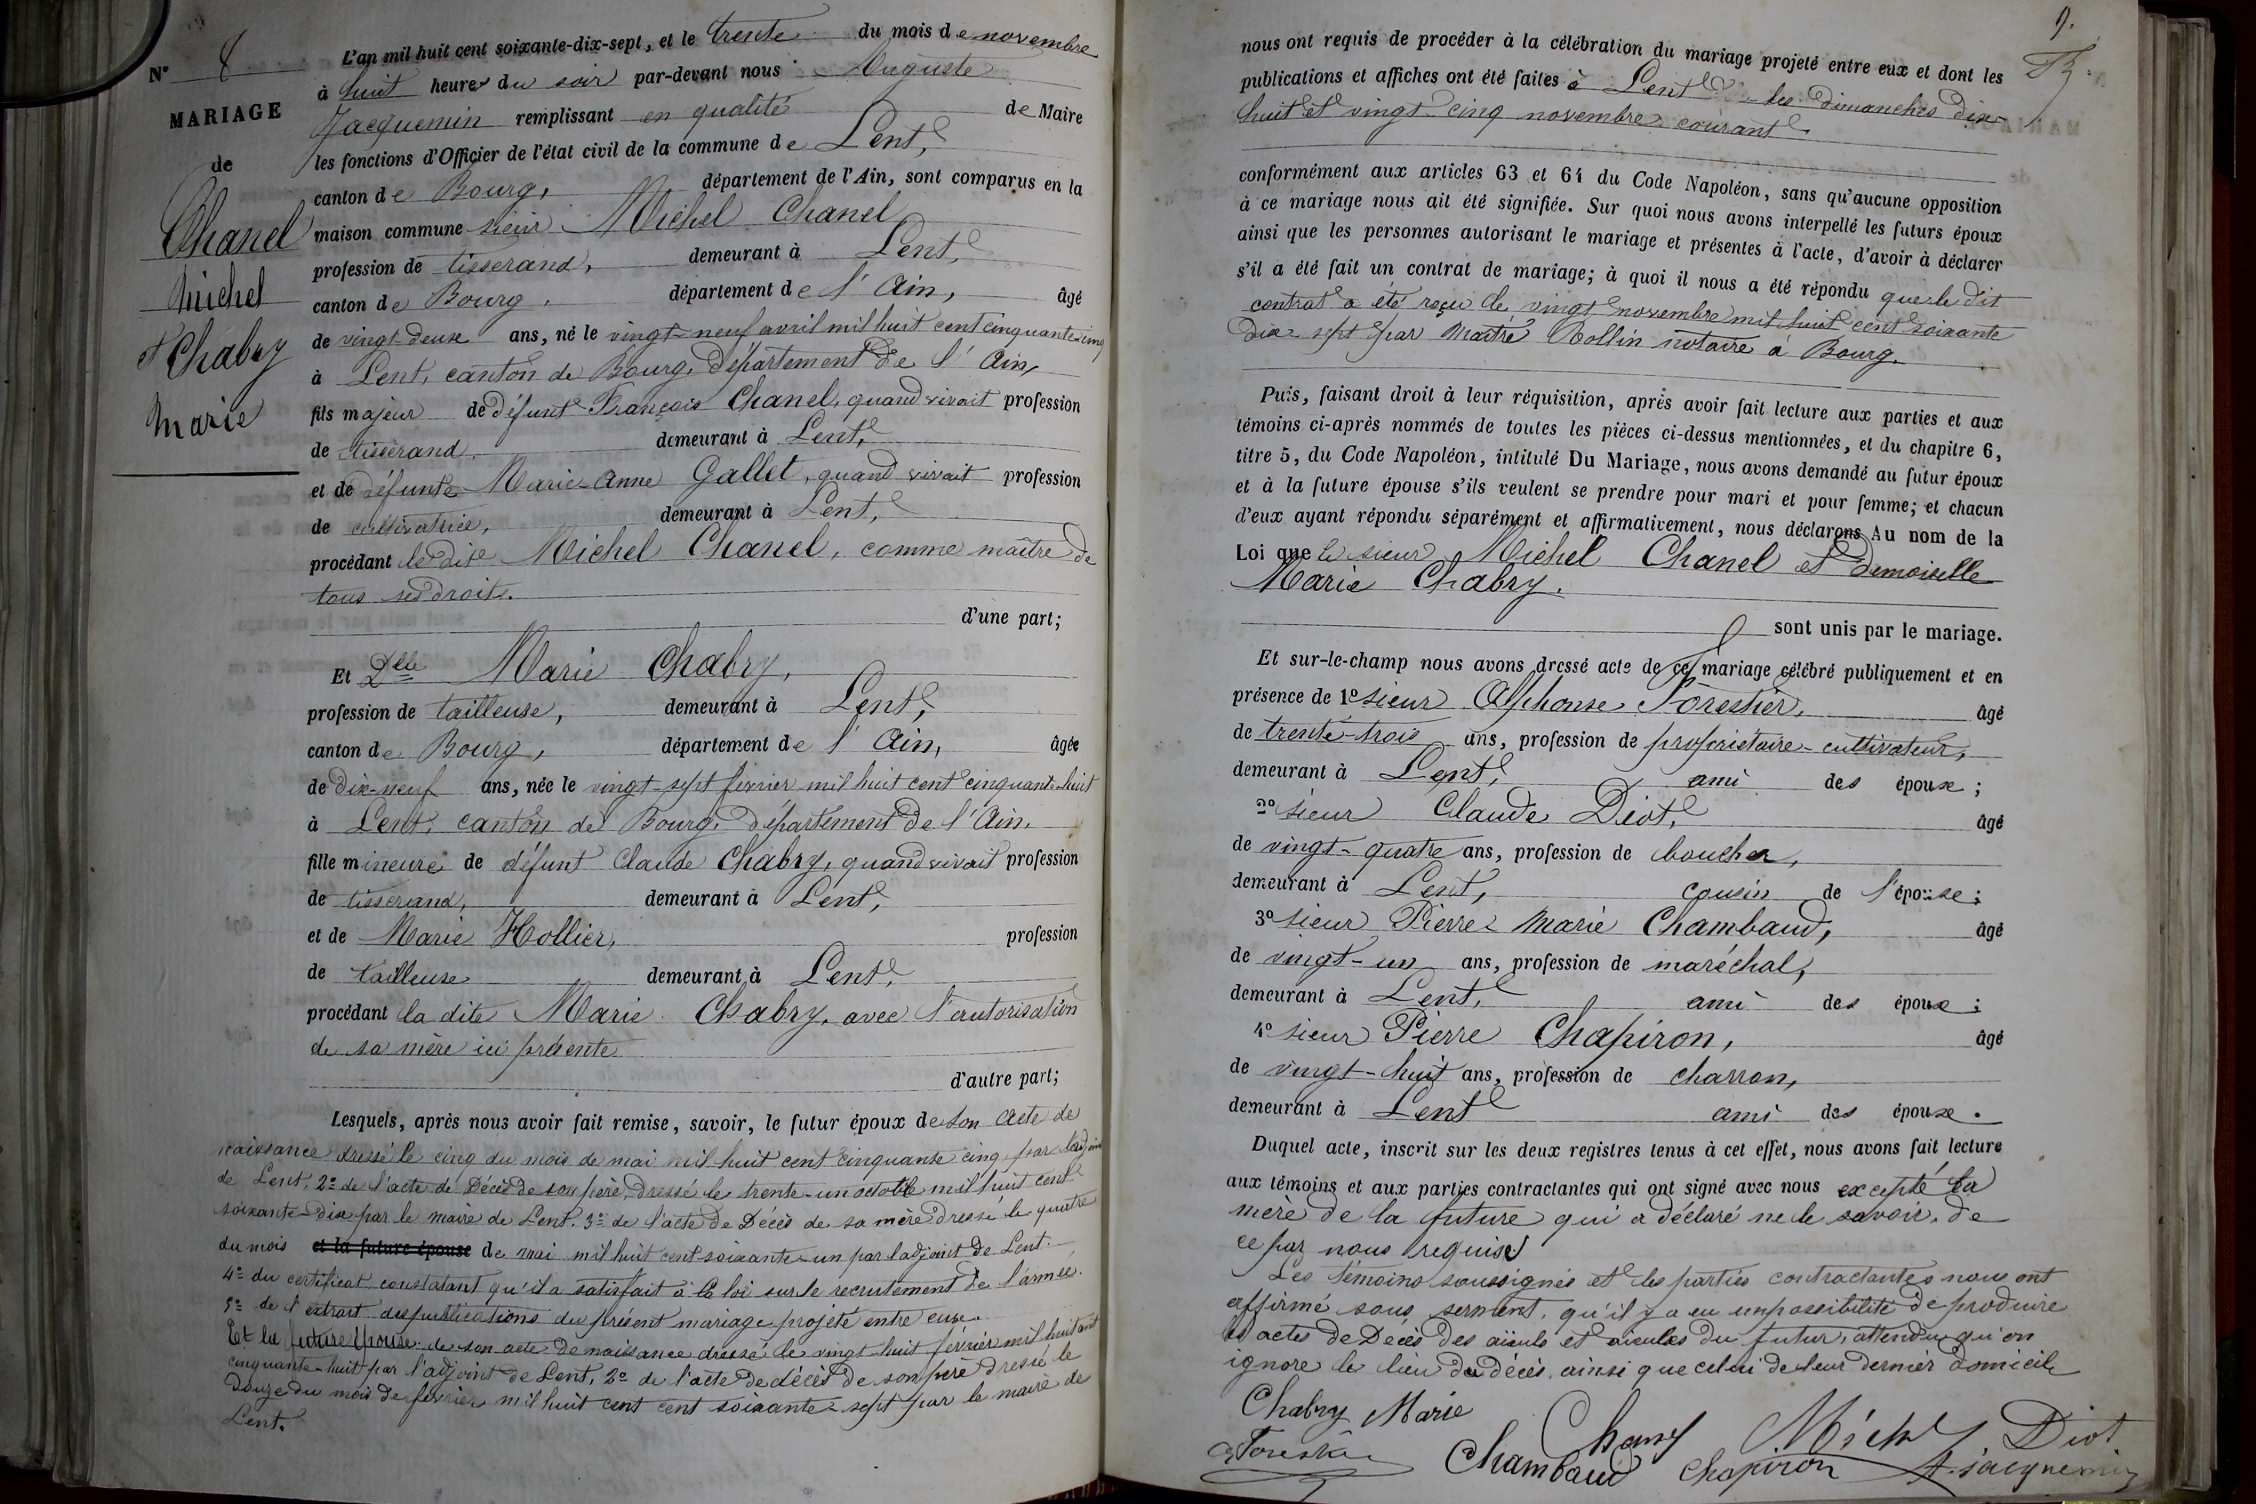 N° 8
MARIAGE
de
Chanel
Michel
et Chabry
Marie
L'an mil huit cent soixante-dix-sept, et le trente du mois de novembre
à huit heures du soir par-devant nous Auguste
Jacquemin remplissant en qualité de Maire
les fonctions d'Officier de l'état civil de la commune de Lent,
canton de Bourg, département de l'Ain, sont comparus en la
maison commune sieur Michel Chanel
profession de tisserand, demeurant à Lent,
canton de Bourg, département de l'Ain, âgé
de vingt-deux ans, né le vingt-neuf avril mil huit cent cinquante-cinq
à Lent, canton de Bourg, département de l'Ain,
fils majeur de défunt François Chanel, quand vivait profession
de tisserand, demeurant à Lent,
et de défunte Marie-Anne Gallet, quand vivait profession
de cultivatrice, demeurant à Lent,
procédant le dit Michel Chanel, comme maître de
tous ses droits.
d'une part;
Et Dlle Marie Chabry,
profession de tailleuse, demeurant à Lent,
canton de Bourg, département de l'Ain, âgée
de dix-neuf ans, née le vingt-sept février mil huit cent cinquante-huit
à Lent, canton de Bourg, département de l'Ain.
fille mineure de défunt Claude Chabry, quand vivait profession
de tisserand, demeurant à Lent,
et de Marie Hollier, profession
de tailleuse demeurant à Lent,
procédant la dite Marie Chabry, avec l'autorisation
de sa mère ici présente
d'autre part;
Lesquels, après nous avoir fait remise, savoir, le futur époux de son acte de
naissance dressé le cinq du mois de mai mil huit cent cinquante cinq par l'adjoint
de Lent, 2° de l'acte de Décès de son père, dressé le trente-un octobre mil huit cent
soixante-dix par le maire de Lent. 3° de l'acte de Décès de sa mère dressé le quatre
du mois et la future épouse de mai mil huit cent soixante-un par l'adjoint de Lent.
4° du certificat constatant qu'il a satisfait à la loi sur le recrutement de l'armée.
5° de l'extrait des publications du présent mariage projeté entre eux.
Et la future épouse de son acte de naissance dressé le vingt-huit février mil huit cent
cinquante-huit par l'adjoint de Lent, 2° de l'acte de décès de son père dressé le
douze du mois de février mil huit cent cent soixante-sept par le maire de
Lent.
9.
nous ont requis de procéder à la célébration du mariage projeté entre eux et dont les
publications et affiches ont été faites à Lent les dimanches dix-
huit et vingt-cinq novembre courant
conformément aux articles 63 et 64 du Code Napoléon, sans qu'aucune opposition
à ce mariage nous ait été signifiée. Sur quoi nous avons interpellé les futurs époux
ainsi que les personnes autorisant le mariage et présentes à l'acte, d'avoir à déclarer
s'il a été fait un contrat de mariage; à quoi il nous a été répondu que le dit
contrat a été reçu le vingt novembre mil huit cent soixante
dix-sept par Maître Rollin notaire à Bourg.
Puis, faisant droit à leur réquisition, après avoir fait lecture aux parties et aux
témoins ci-après nommés de toutes les pièces ci-dessus mentionnées, et du chapitre 6,
titre 5, du Code Napoléon, intitulé Du Mariage, nous avons demandé au futur époux
et à la future épouse s'ils veulent se prendre pour mari et pour femme; et chacun
d'eux ayant répondu séparément et affirmativement, nous déclarons Au nom de la
Loi que le sieur Michel Chanel et demoiselle
Marie Chabry.
sont unis par le mariage.
Et sur-le-champ nous avons dressé acte de ce mariage célébré publiquement et en
présence de 1° sieur Alphonse Forestier, âgé
de trente-trois ans, profession de propriétaire-cultivateur,
demeurant à Lent, ami des époux;
2° sieur Claude Diot, âgé
de vingt-quatre ans, profession de boucher,
demeurant à Lent, cousin de l'épouse;
3° sieur Pierre Marie Chambaud, âgé
de vingt-un ans, profession de maréchal,
demeurant à Lent, ami des époux;
4° sieur Pierre Chapiron, âgé
de vingt-huit ans, profession de charron,
demeurant à Lent ami des époux.
Duquel acte, inscrit sur les deux registres tenus à cet effet, nous avons fait lecture
aux témoins et aux parties contractantes qui ont signé avec nous excepté la
mère de la future qui a déclaré ne le savoir, de
ce par nous requise
Les témoins soussignés et les parties contractantes nous ont
affirmé sous serment, qu'il y a eu impossibilité de produire
les actes de Décès des aïeuls et aïeules du futur, attendu qu'on
ignore le lieu du décès, ainsi que celui de leur dernier domicile
Chabry Marie Chanel Michel Diot
Forestier Chambaud Chapiron A. Jacquemin